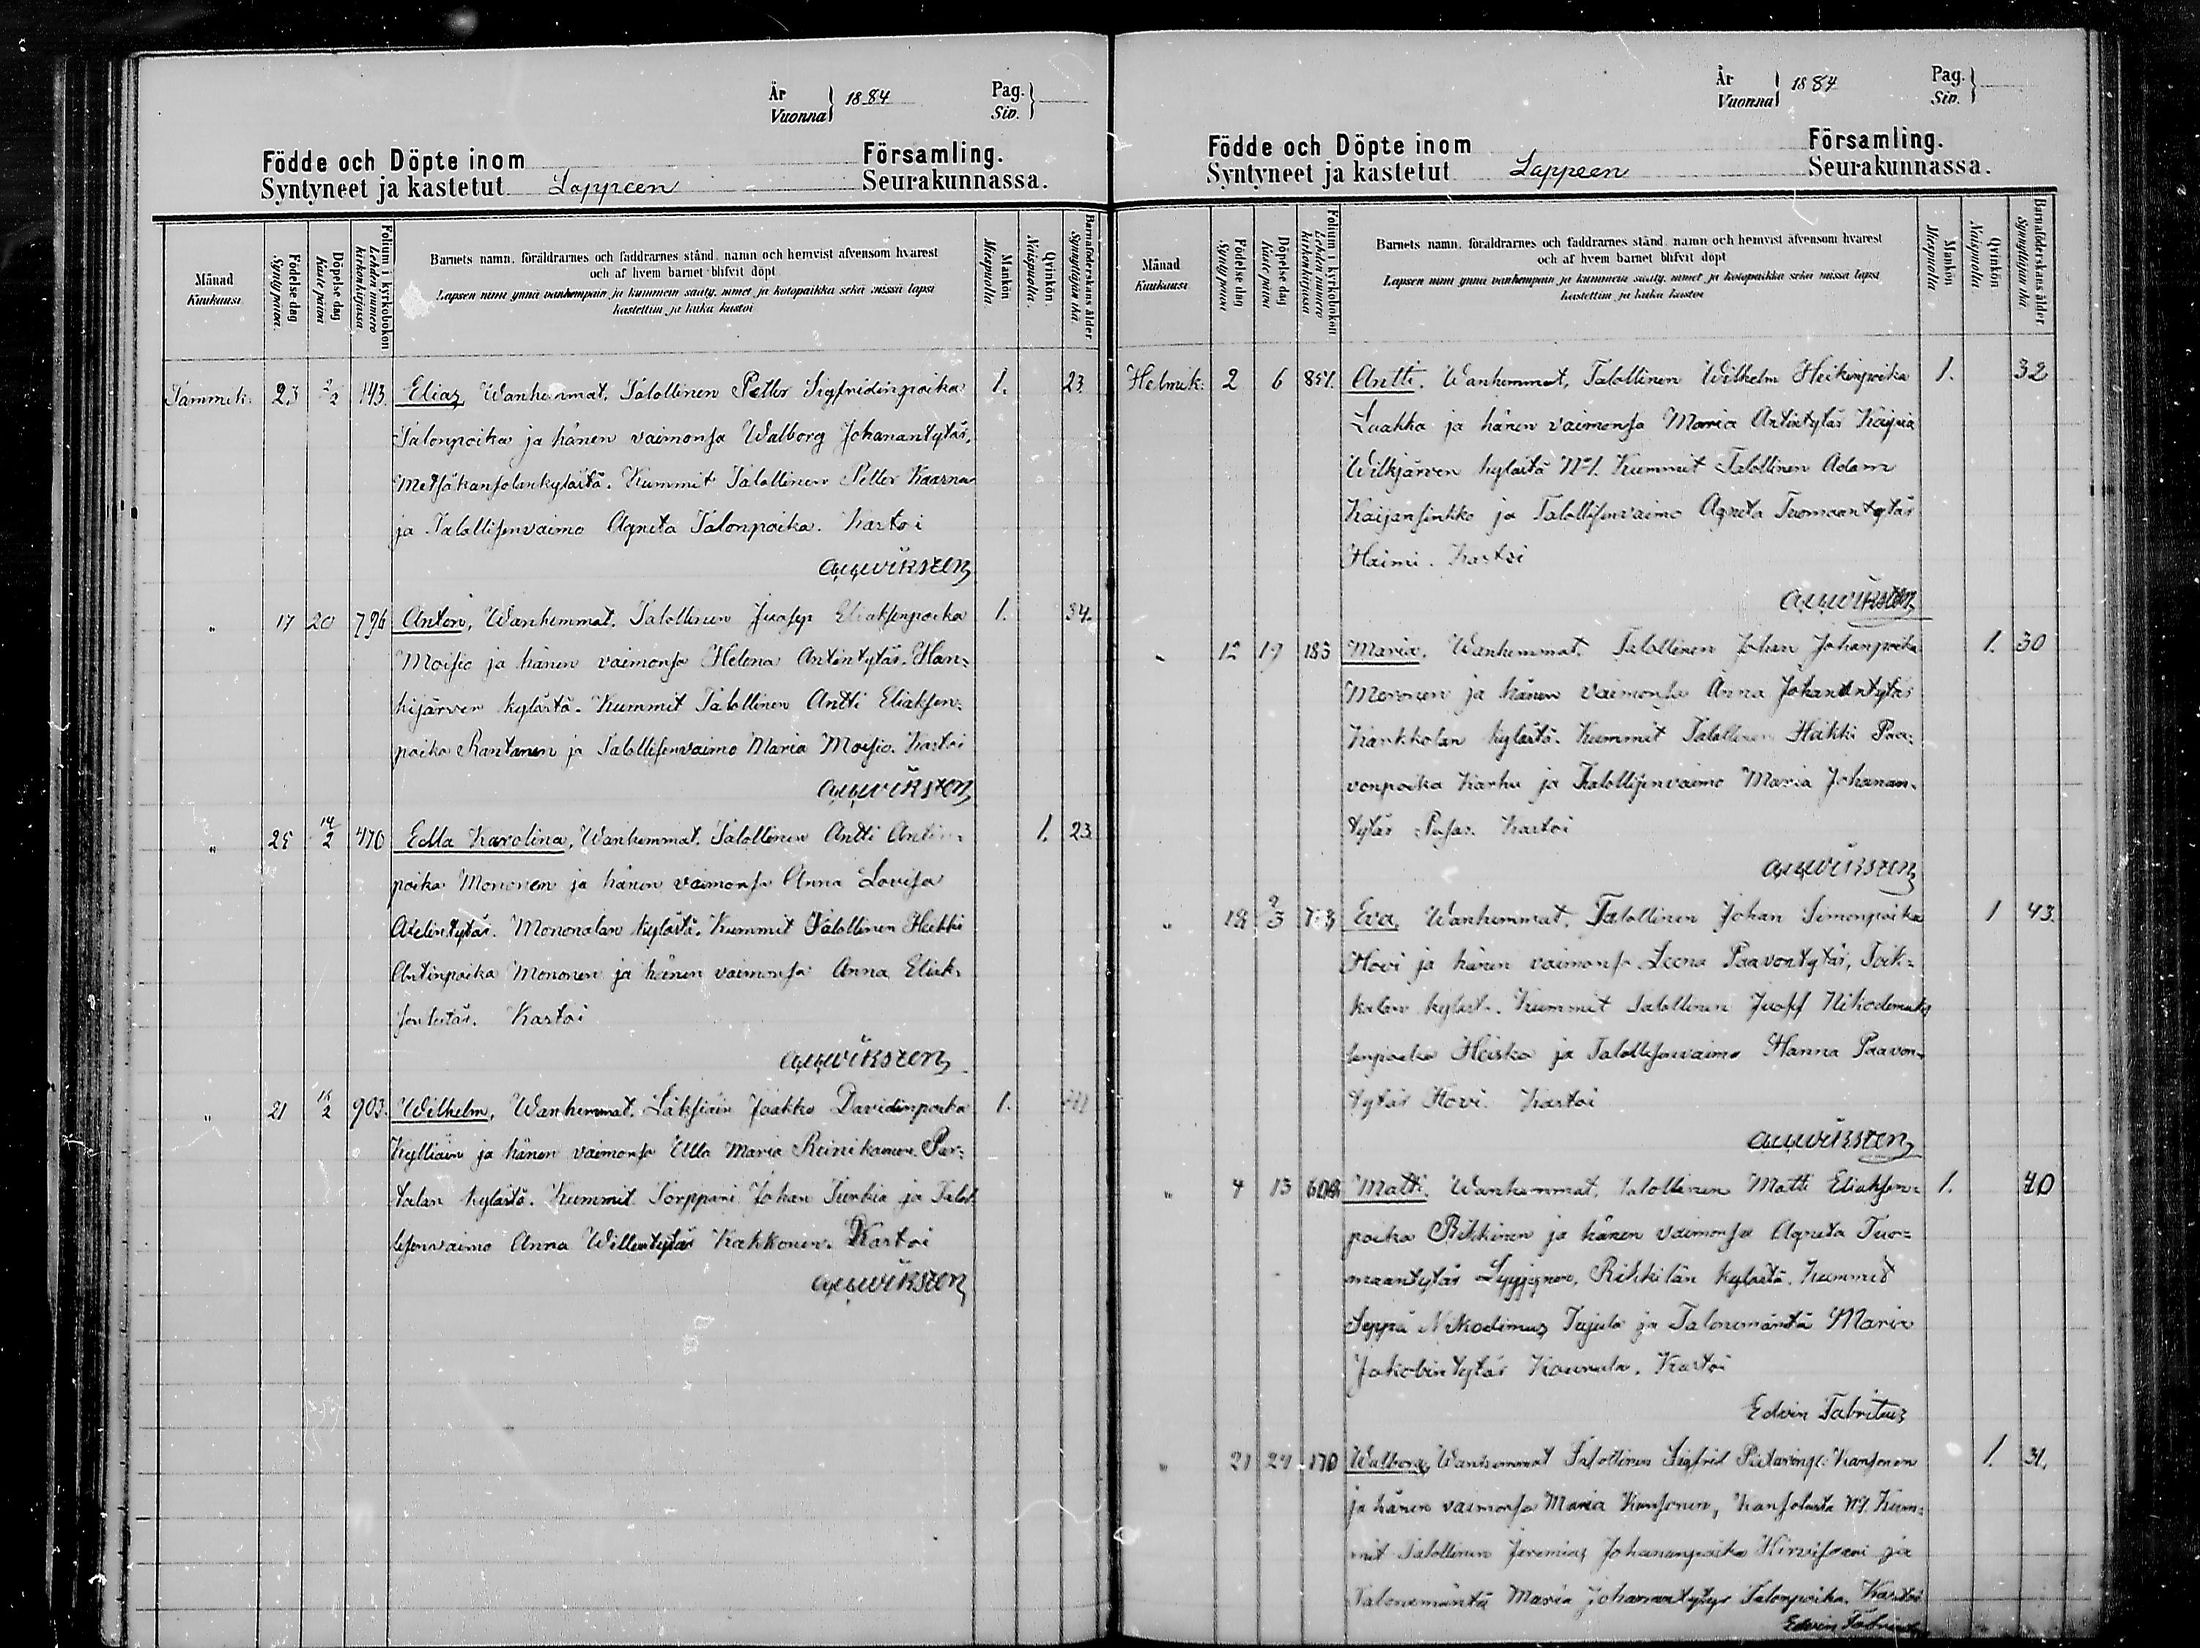 År
Vuonna 1884 Pag.
Siv.
Födde och Döpte inom Församling.
Syntyneet ja kastetut Lappeen Seurakunnassa.
Månad
Kuukausi
Födelse dag
Synty päivä
Döpelse dag
Kaste päivä
Folium i kyrkoboken
Lehden numero
kirkonkirjassa
Barnets namn, föräldrarnes och faddrarnes stånd, namn och hemvist äfvensom hvarest
och af hvem barnet blifvit döpt
Lapsen nimi ynnä vanhempain ja kummein sääty, nimet ja kotopaikka sekä missä lapsi
kastettiin ja kuka kastoi
Mankön
Miespuolia
Qvinkön
Naispuolia
Barnaföderskans ålder
Synnyttäjän ikä
Tammik. 23 2/2 143. Elias, Wanhemmat, Talollinen Petter Sigfridinpoika 1. 23
Talonpoika ja hänen vaimonsa Walborg Johanantytär,
Metsäkansolankylästä. Kummit Talollinen Petter Kaarna
ja Talollisenvaimo Agneta Talonpoika. Kastoi
" 17 20 796 Anton, Wanhemmat, Talollinen Juosep Eliaksenpoika 1. 34.
Moisio ja hänen vaimonsa Helena Antintytär, Han-
kijärven kylästä. Kummit Talollinen Antti Eliaksen-
poika Rantanen ja Talollisenvaimo Maria Moisio. Kastoi
" 25 14/2 470 Edla Karolina, Wanhemmat, Talollinen Antti Antin- 1. 23
poika Mononen ja hänen vaimonsa Anna Lovisa
Axelintytär. Mononalan kylästä. Kummit Talollinen Heikki
Antinpoika Mononen ja hänen vaimonsa Anna Eliak-
sentytär. Kastoi
" 21 2 903. Wilhelm, Wanhemmat, Jaakko Davidinpoika 1.
Kylliäin ja hänen vaimonsa Ulla Maria Reinikainen. Par-
talan kylästä. Kummit Torppari Johan Turkia ja Talol-
lisenvaimo Anna Willentytär Kakkonen. Kastoi
År
Vuonna 1884 Pag.
Siv.
Födde och Döpte inom Församling.
Syntyneet ja kastetut Lappeen Seurakunnassa.
Månad
Kuukausi
Födelse dag
Synty päivä
Döpelse dag
Kaste päivä
Folium i kyrkoboken
Lehden numero
kirkonkirjassa
Barnets namn, föräldrarnes och faddrarnes stånd, namn och hemvist äfvensom hvarest
och af hvem barnet blifvit döpt
Lapsen nimi ynnä vanhempain ja kummein sääty, nimet ja kotopaikka sekä missä lapsi
kastettiin ja kuka kastoi
Mankön
Miespuolia
Qvinkön
Naispuolia
Barnaföderskans ålder
Synnyttäjän ikä
Helmik. 2 6 851. Antti. Wanhemmat, Talollinen Wilhelm Heikinpoika 1. 32
Laakko ja hänen vaimonsa Maria Antintytär Kaijia
Wilkjärven kylästä No 1. Kummit Talollinen Adam
Kaijansinkko ja Talollisenvaimo Agneta Tuomaantytär
Haimi. Kastoi
" 12 19 183 Maria, Wanhemmat, Talollinen Johan Johanpoika 1. 30
Moronen ja hänen vaimonsa Anna Johanantytär
Karkkolan kylästä. Kummit Talollinen Heikki Paa-
vonpoika Karhu ja Talollisenvaimo Maria Johanan-
tytär Pusas. Kastoi
" 18 2/3 Eva, Wanhemmat, Talollinen Johan Simonpoika 1 43.
Hovi ja hänen vaimonsa Leena Paavontytär, Toik-
kalan kyläst. Kummit Talollinen Juosef Nikodemuk-
senpoika Heiska ja Talollisenvaimo Hanna Paavon-
tytär Hovi. Kastoi
" 4 13 Matti. Wanhemmat, Talollinen Matti Eliaksen- 1. 40
poika Rikkinen ja hänen vaimonsa Agneta Tuo-
maantytär Lyyjynen, Rikkilän kylästä. Kummit
Seppä Nikodimus Tujula ja Talonemäntä Maria
Jakobintytär Kaunula. Kastoi
Edvin Fabritius
" 21 24 170 Walborg, Wanhemmat Talollinen Sigfrid Pietarinp. Kansonen 1. 31.
ja hänen vaimonsa Maria Kansonen, Kansolasta No 1. Kum-
mit Talollinen Jeremias Johananpoika Hirvisaari ja
Talonemäntä Maria Johanantytyr Talonpoika. Kastoi
Edvin Fabritius